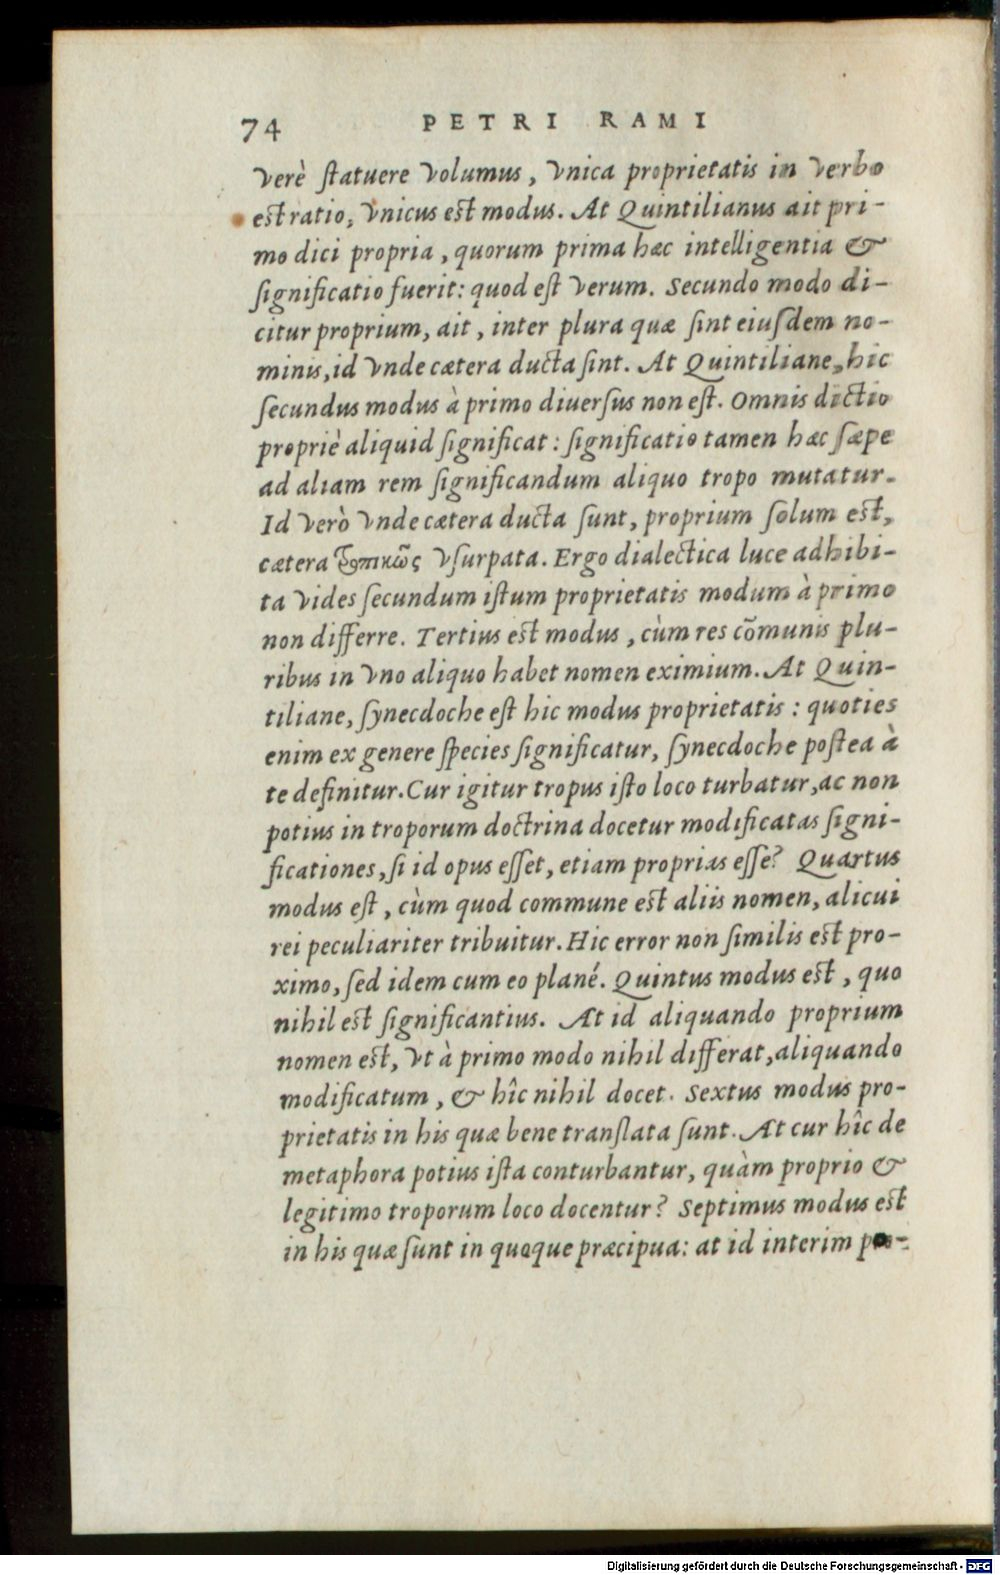 74 PETRI RAMI
verè ſtatuere volumus, vnica proprietatis in verbo
est ratio, vnicus est modus. At Quintilianus ait pri-
mo dici propria, quorum prima hæc intelligentia &
ſignificatio fuerit: quod eſt verum. Secundo modo di-
citur proprium, ait, inter plura quæ ſint eiuſdem no-
minis, id vnde cætera ducta ſint. At Quintiliane, hic
ſecundus modus à primo diuerſus non eſt. Omnis dictio
propriè aliquid ſignificat: ſignificatio tamen hæc ſæpe
ad aliam rem ſignificandum aliquo tropo mutatur.
Id verò vnde cætera ducta ſunt, proprium ſolum est,
cætera τροπικῶς vſurpata. Ergo dialectica luce adhibi-
ta vides ſecundum iſtum proprietatis modum à primo
non differre. Tertius est modus, cùm res cõmunis plu-
ribus in vno aliquo habet nomen eximium. At Quin-
tiliane, ſynecdoche eſt hic modus proprietatis: quoties
enim ex genere ſpecies ſignificatur, ſynecdoche poſtea à
te definitur. Cur igitur tropus iſto loco turbatur, ac non
potius in troporum doctrina docetur modificatas ſigni-
ficationes, ſi id opus eſſet, etiam proprias eſſe? Quartus
modus eſt, cùm quod commune est aliis nomen, alicui
rei peculiariter tribuitur. Hic error non ſimilis est pro-
ximo, ſed idem cum eo plané. Quintus modus est, quo
nihil est ſignificantius. At id aliquando proprium
nomen est, vt à primo modo nihil differat, aliquando
modificatum, & hîc nihil docet. Sextus modus pro-
prietatis in his quæ bene tranſlata ſunt. At cur hîc de
metaphora potius iſta conturbantur, quàm proprio &
legitimo troporum loco docentur? Septimus modus est
in his quæ ſunt in quoque præcipua: at id interim
Digitalisierung gefördert durch die Deutsche Forschungsgemeinschaft - DFG